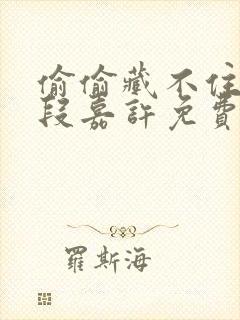 偷偷藏不住
段嘉許免費
羅斯海